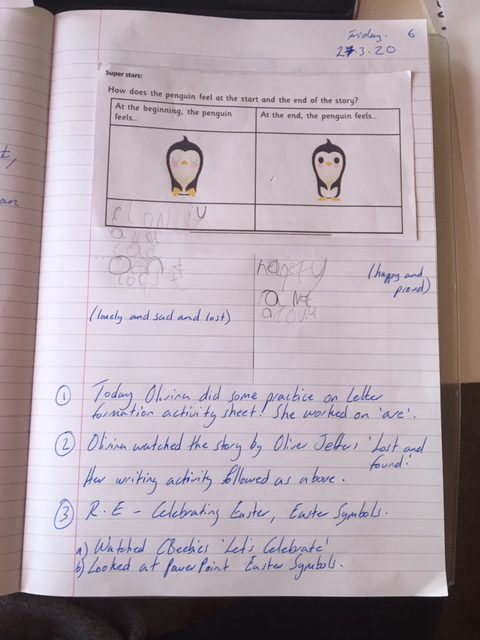 Friday. 6
27.3.20
Super stars:
How does the penguin feel at the start and the end of the story?
At the beginning, the penguin feels..
At the end, the penguin feels..
(lonely and sad and lost)
(happy and proud)
① Today Olivina did some practice on Letter
formation activity sheet! She worked on 'are'.
② Olivina watched the story by Oliver Jeffers 'Lost and
found'.
Her writing activity followed as above.
③ R.E - Celebrating Easter, Easter Symbols.
a) Watched CBeebies 'Let's Celebrate'
b) Looked at PowerPoint Easter Symbols.